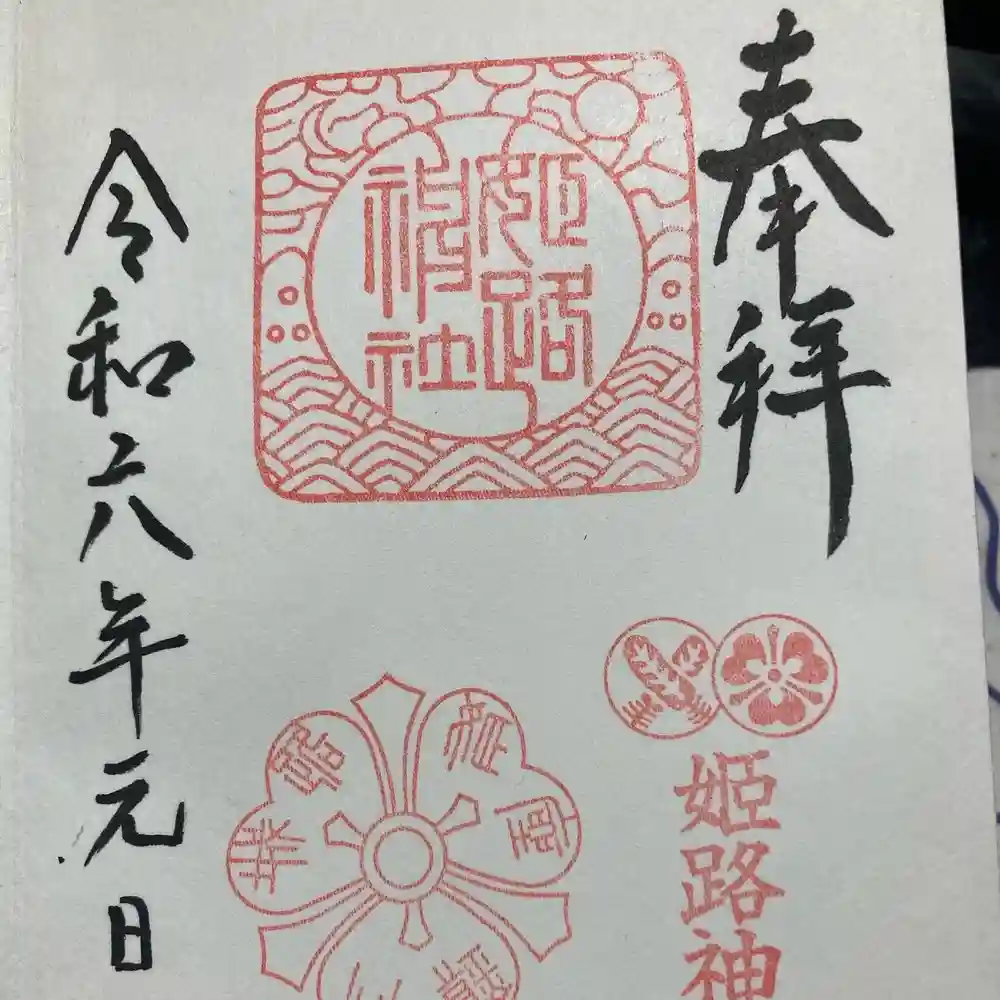 奉拝
姫路神社
姫路神
令和六年元日